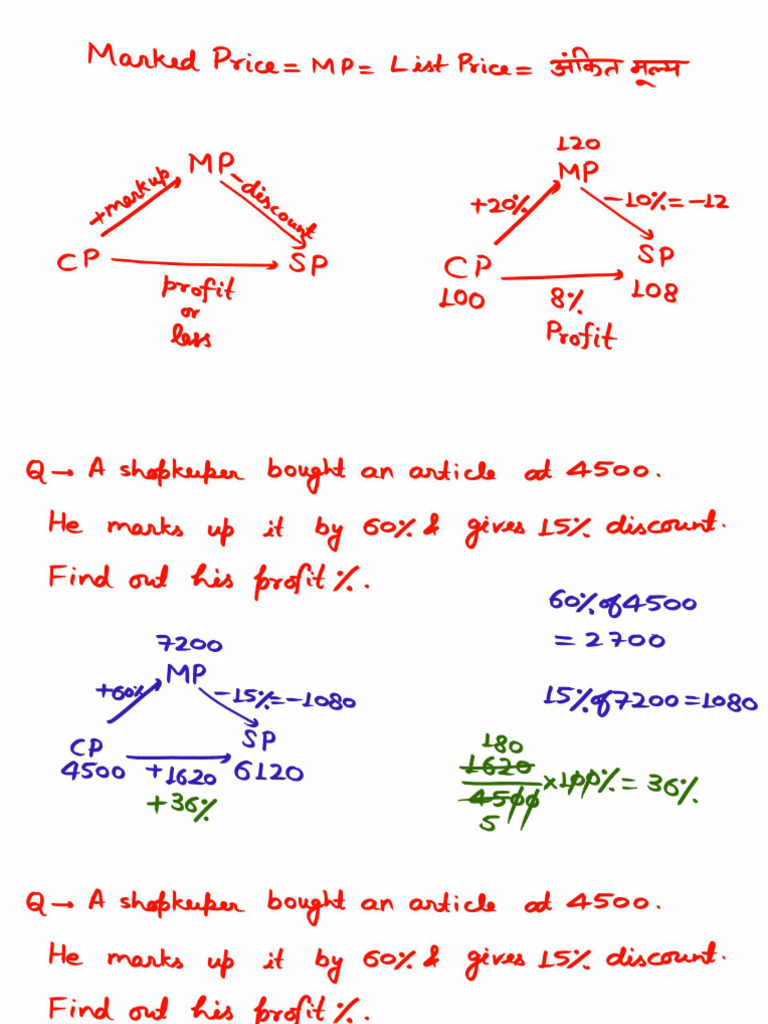 Marked Price = MP = List Price = अंकित मूल्य
MP
+markup
-discount
CP
SP
profit
or
less
120
MP
+20%
-10% = -12
CP
SP
100
8%
108
Profit
Q → A shopkeeper bought an article at 4500.
He marks up it by 60% & gives 15% discount.
Find out his profit %.
7200
MP
+60%
-15% = -1080
CP
SP
4500
+1620
6120
+36%
60% of 4500
= 2700
15% of 7200 = 1080
180
1620
4500
5
×100% = 36%
Q → A shopkeeper bought an article at 4500.
He marks up it by 60% & gives 15% discount.
Find out his profit %.